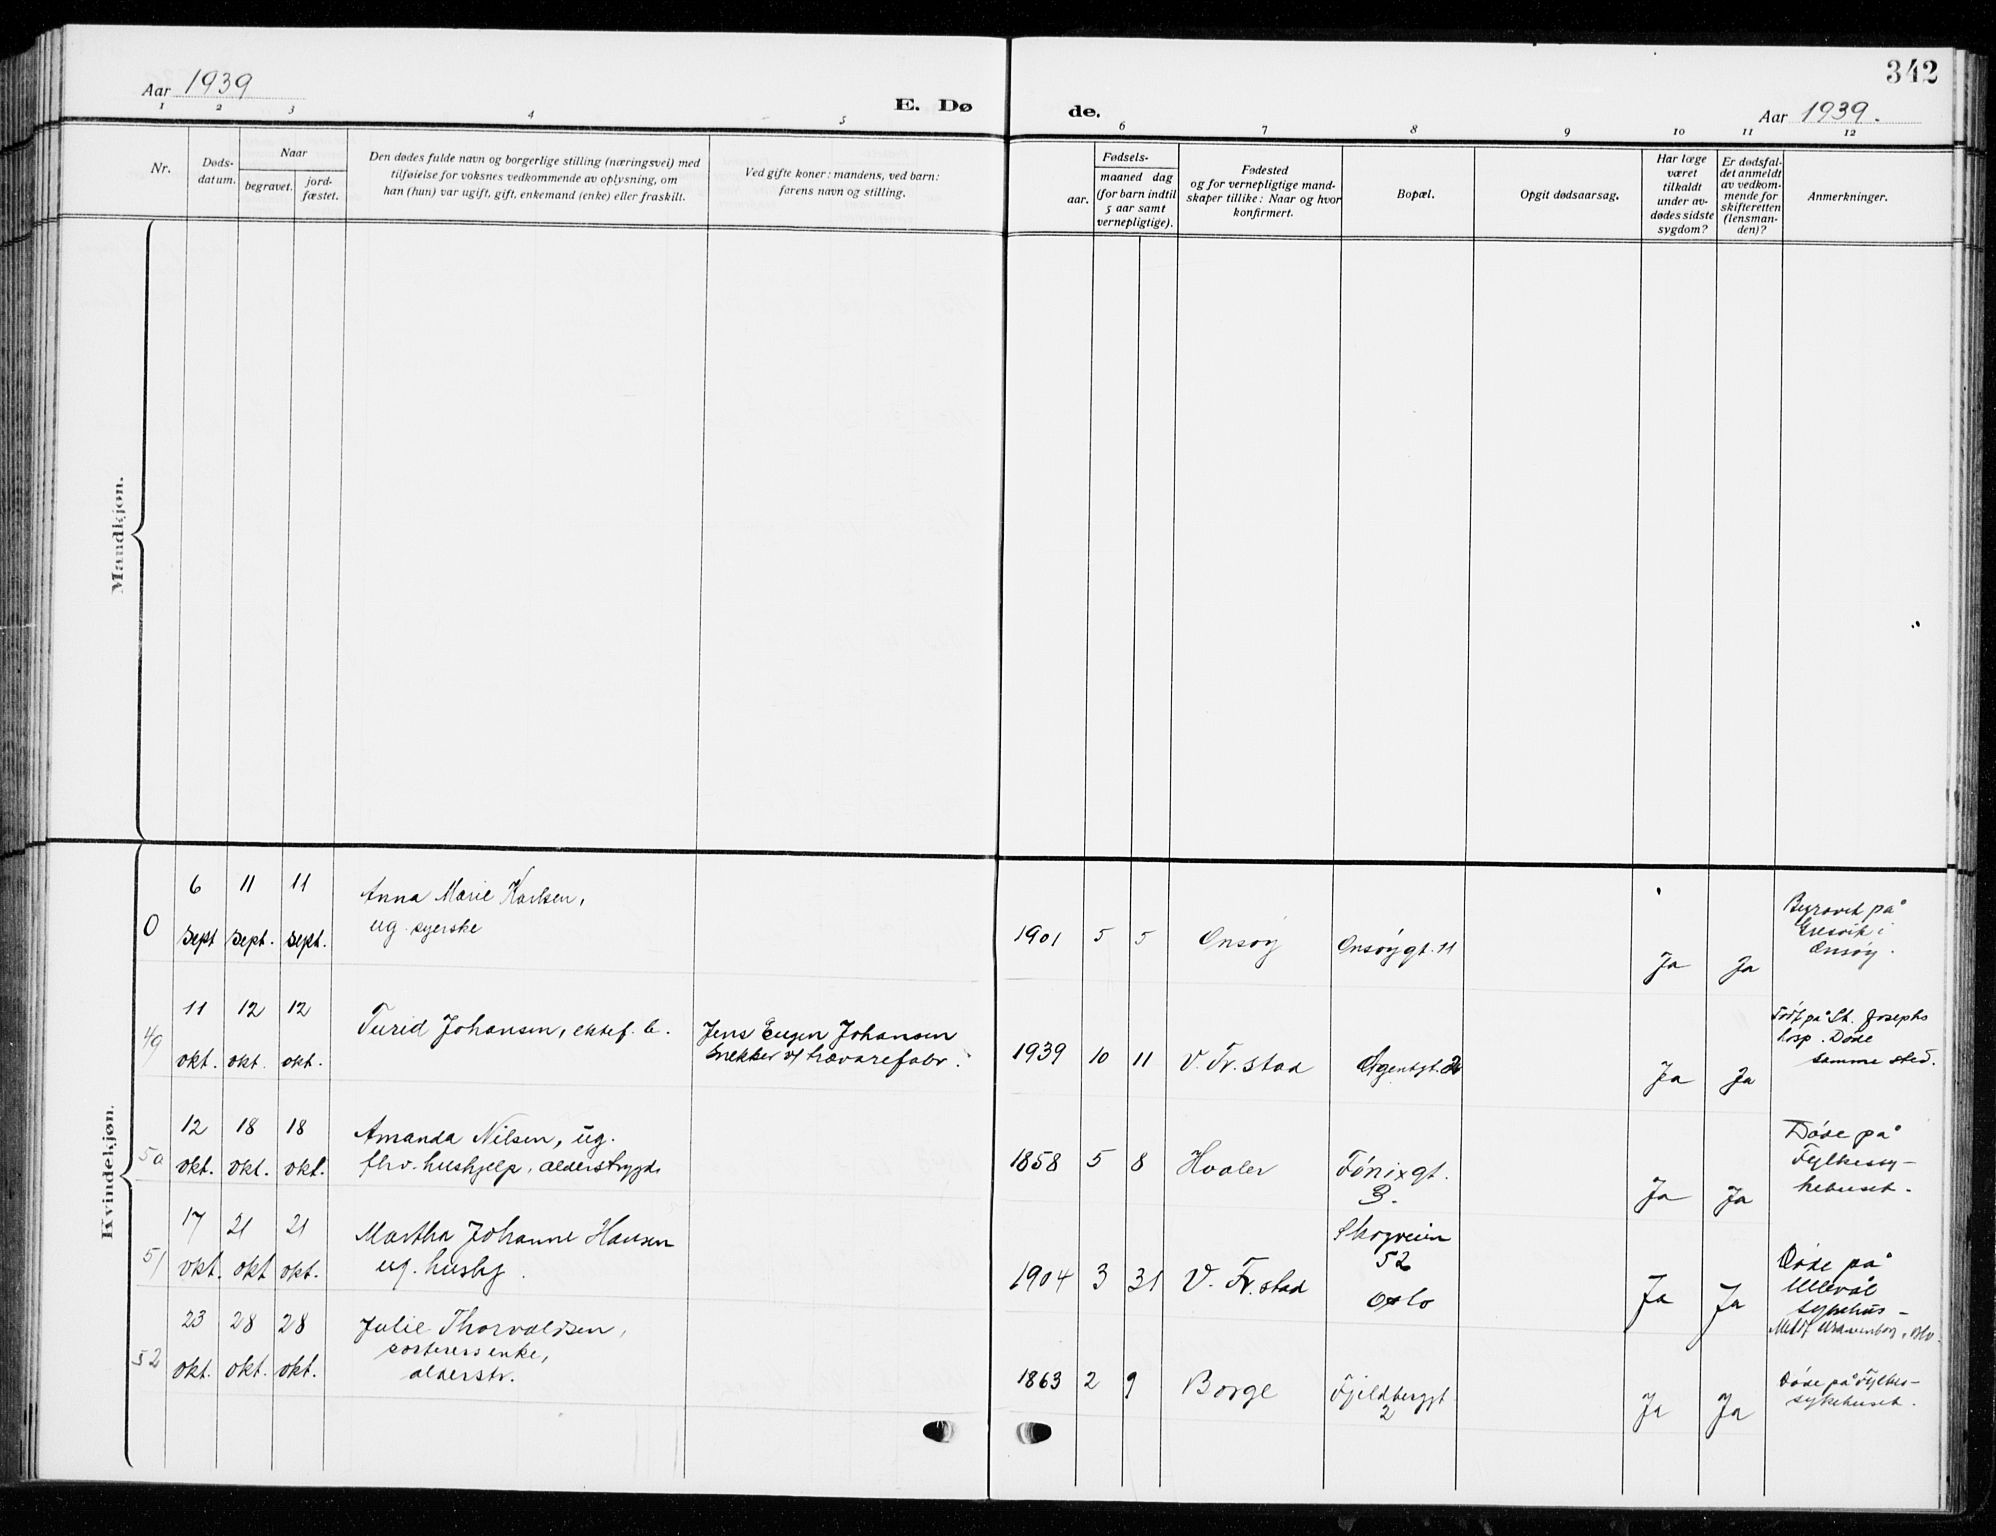 342
Aar 1939
E. Dø
de.
Aar 1939.
1 2 3 4 5 6 7 8 9 10 11 12
Nr.
Døds-
datum.
Naar
begravet.
jord-
fæstet.
Den dødes fulde navn og borgerlige stilling (næringsvei) med
tilføielse for voksnes vedkommende av oplysning, om
han (hun) var ugift, gift, enkemand (enke) eller fraskilt.
Ved gifte koner: mandens, ved barn:
farens navn og stilling.
Fødsels-
aar.
maaned dag
(for barn indtil
5 aar samt
vernepligtige).
Fødested
og for vernepligtige mand-
skaper tillike: Naar og hvor
konfirmert.
Bopæl.
Opgit dødsaarsag.
Har læge
været
tilkaldt
under av-
dødes sidste
sygdom?
Er dødsfal-
det anmeldt
av vedkom-
mende for
skifteretten
(lensman-
den)?
Anmerkninger.
Mandkjøn.
Kvindekjøn.
0
6 11 11
sept sept. sept.
Anna Marie Karlsen,
ug. syerske
1901 5 5 Onsøy Onsøygt. 11 Ja Ja
Begravet på
Gresvik i
Onsøy.
49
11 12 12
okt. okt. okt.
Turid Johansen, ektef. b.
Jens Eugen Johansen
snekker v/ trævarefabr.
1939 10 11 V. Fr.stad Agentgt. 2 Ja Ja
Født på St. Josephs
hosp. Døde
samme sted.
50
12 18 18
okt. okt. okt.
Amanda Nilsen, ug.
fhv. hushjelp, alderstrygd.
1858 5 8 Hvaler Fønixgt.
3.
Ja Ja
Døde på
Fylkessy-
kehuset.
51
17 21 21
okt. okt okt.
Martha Johanne Hansen
ug. husby.
1904 3 31 V. Fr.stad
Skogveien
52
Oslo
Ja Ja
Døde på
Ullevål
sykehus -
Meldt Uranienborg,
52
23 28 28
okt. okt. okt.
Julie Thorvaldsen,
sorterers enke,
alderstr.
1863 2 9 Borge Fjeldberggt.
2
Ja Ja
Døde på Fylkes-
sykehuset.